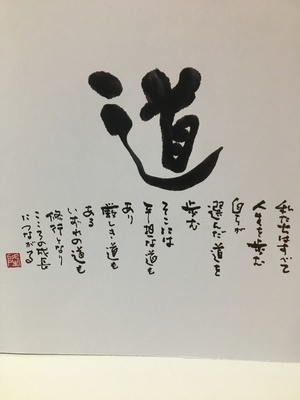 道
私たちはすべて
人生を歩む
自らが
選んだ道を
歩む
そこには
平担な道も
あり
厳しき道も
ある
いずれの道も
修行となり
こころの成長
につながる